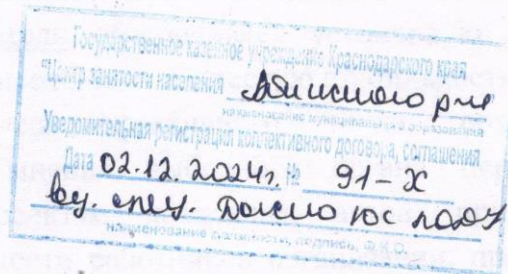 Государственное казенное учреждение Краснодарского края
"Центр занятости населения
наименование муниципального образования
Уведомительная регистрация коллективного договора, соглашения
Дата 02.12.2024г. № 91-х
вед. спец.
наименование должности, подпись, Ф.И.О.